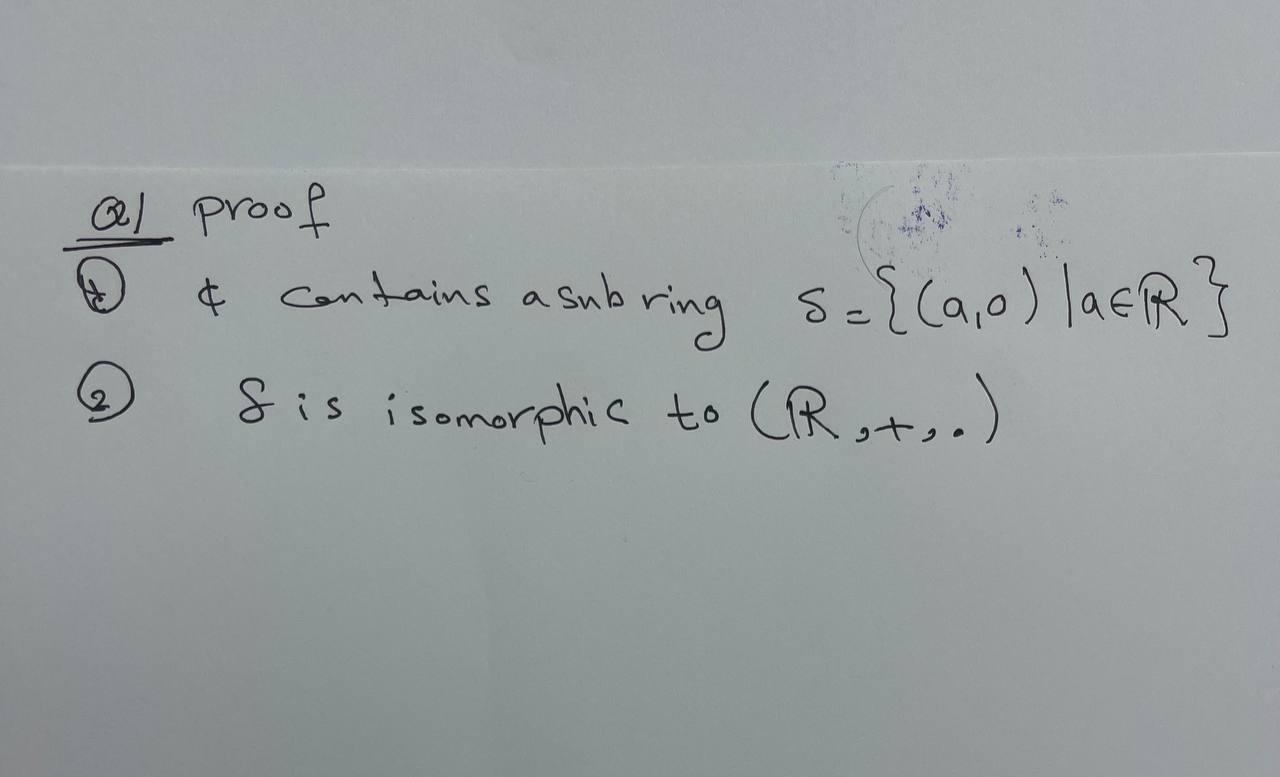 Q1 proof
① ¢ contains a sub ring S = {(a,0) | a∈ℝ}
② S is isomorphic to (ℝ,+,.)